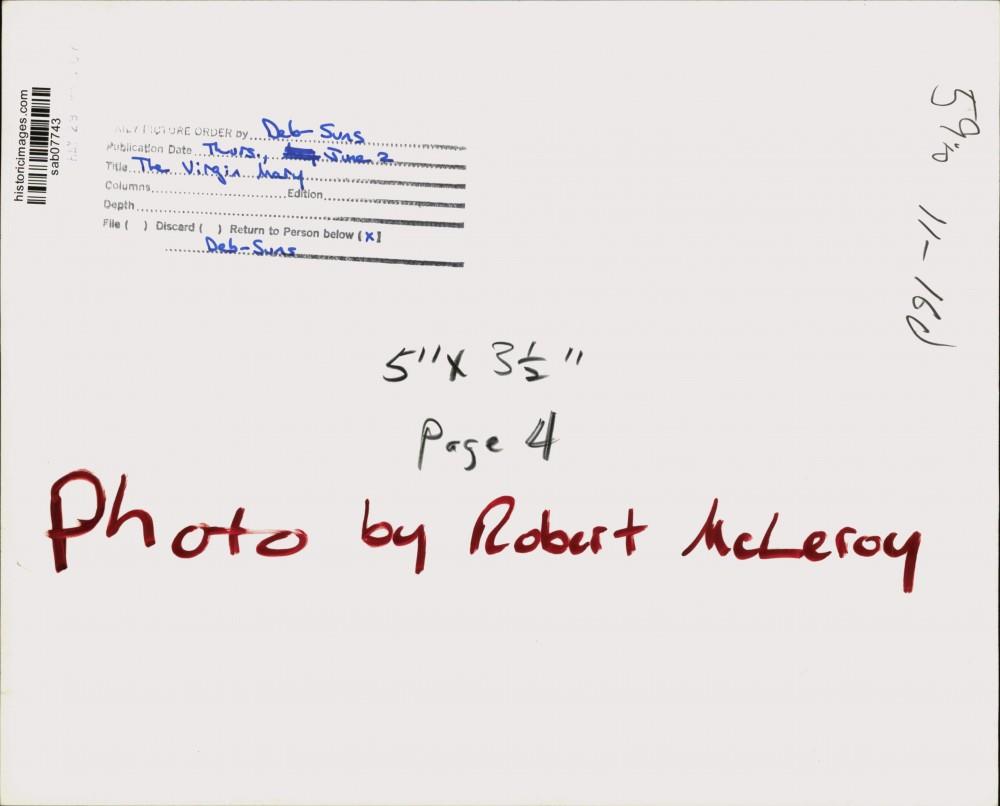 historicimages.com
sab07743
PICTURE ORDER by Deb Suns
Publication Date Thurs., June 2
Title The Virgin Mary
Columns Edition
Depth
File ( ) Discard ( ) Return to Person below (X)
Deb-Suns
59%
11-16d
5" x 3 1/2"
Page 4
Photo by Robert McLeroy